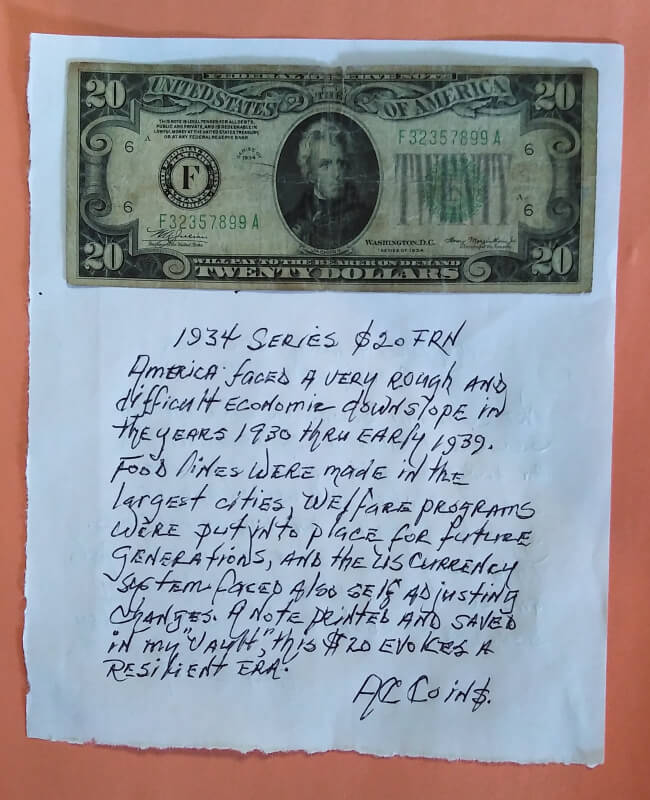 FEDERAL RESERVE NOTE
20 UNITED STATES THE OF AMERICA 20
THIS NOTE IS LEGAL TENDER FOR ALL DEBTS,
PUBLIC AND PRIVATE, AND IS REDEEMABLE IN
LAWFUL MONEY AT THE UNITED STATES TREASURY,
OR AT ANY FEDERAL RESERVE BANK
SERIES OF
1934
F32357899A
6 A 6
F
A
6 6
F32357899A
WASHINGTON, D.C.
SERIES OF 1934
Treasurer of the United States
Secretary of the Treasury
20 WILL PAY TO THE BEARER ON DEMAND 20
TWENTY DOLLARS
1934 SERIES $20 FRN
AMERICA FACED A VERY ROUGH AND
difficult ECONOMIC downslope IN
the YEARS 1930 thru EARLY 1939.
FOOD lines WERE made IN the
largest cities, WELFARE PROGRAMS
WERE put into place for future
GENERATIONS, AND the US CURRENCY
SYSTEM FACED Also SELF AdJUSTING
CHANGES. A NOTE PRINTED AND SAVED
IN my "VAULT", this $20 EVOKES A
RESILIENT ERA.
AC COIN$.